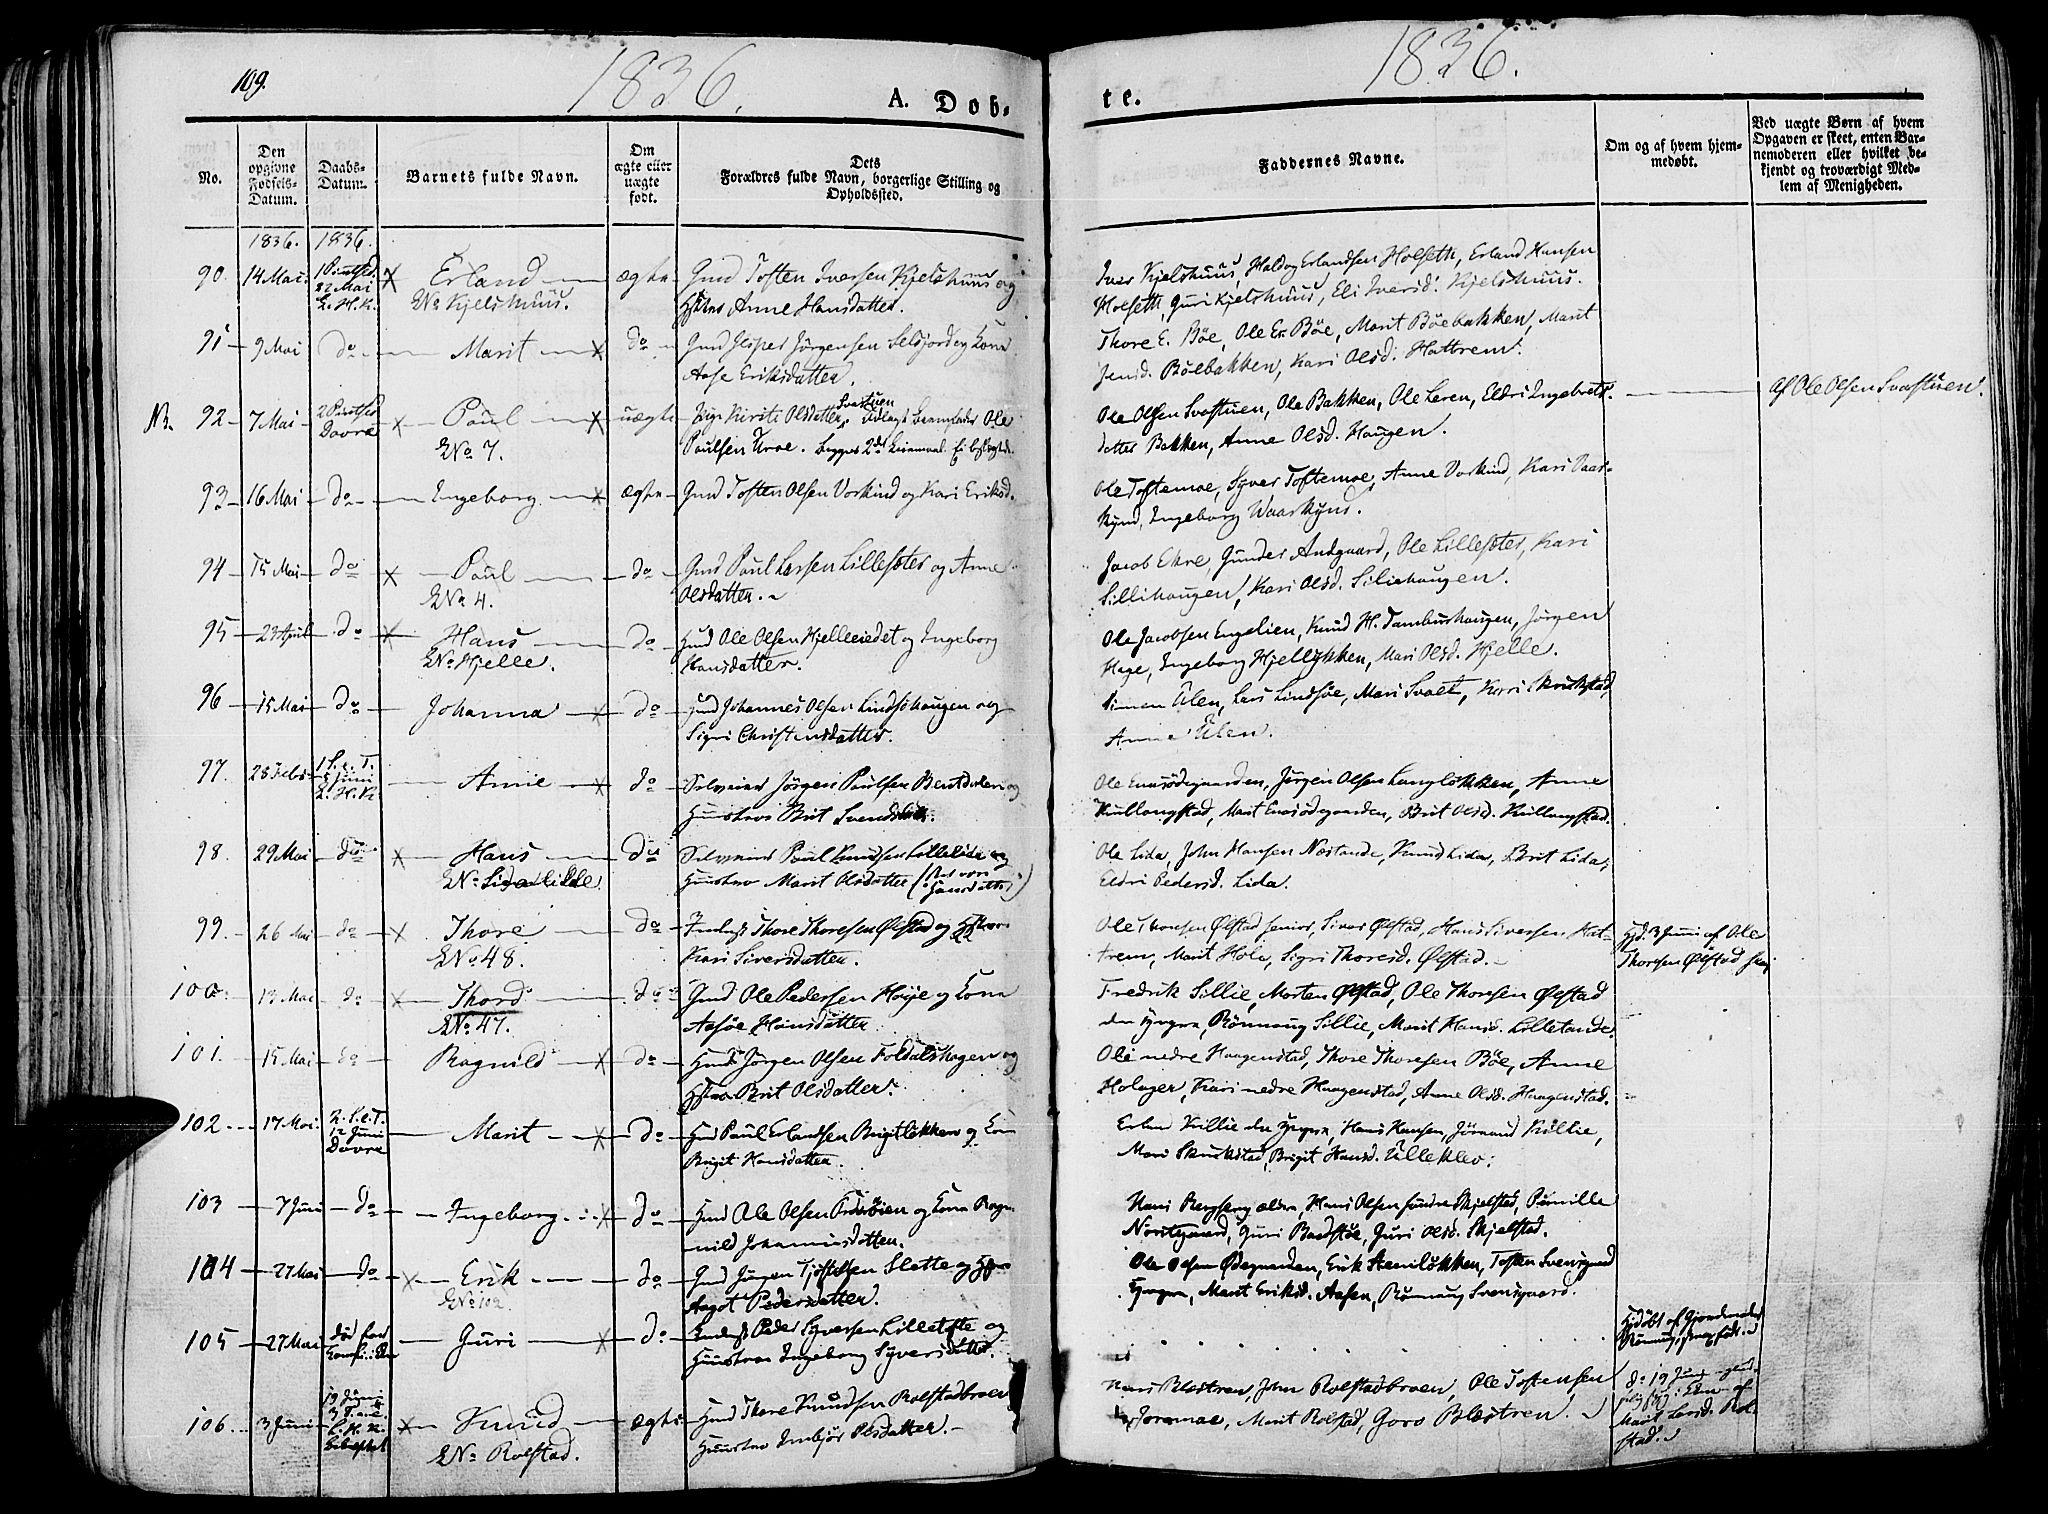 109.
1836.
1836.
A. Dob-
te.
No.
Den opgivne Fødsels-Datum.
Daabs-Datum.
Barnets fulde Navn.
Om ægte eller uægte født.
Dets Forældres fulde Navn, borgerlige Stilling og Opholdssted.
Faddernes Navne.
Om og af hvem hjemmedøbt.
Ved uægte Børn af hvem Opgaven er skeet, enten Barnemoderen eller hvilket bekjendt og troværdigt Medlem af Menigheden.
1836. 1836.
90. 14 Mai 22 Mai L. H. K. Erland ægte Gmd Tosten Iversen Kjelshuus og
No Kjelshuus. Anne Hansdatter.
Iver Kjelshuus, Haldog Erlandsen Holseth, Erland Hansen
Holseth, Guri Kjelshuus, Eli Iversd: Kjelshuus.
91 9 Mai do Marit do Gmd Jesper Jörgensen Selsjord og Kona
Aase Eriksdatter.
Thore E. Böe, Ole Er. Böe, Marit Böebakken, Marit
Jensd. Böebakken, Kari Olsd. Hattrem.
NB. 92 7 Mai Dovre Paul uægte Pige Kirsti Olsdatter Svastuen Udlagt Barnefader Ole
No 7. Paulsen Uroe. Begges 2de Leiermaal.
Ole Olsen Svastuen, Ole Bakken, Ole Leren, Eldri Ingebrets-
datter Bakken, Anne Olsd. Haugen.
af Ole Olsen Svastuen.
93 16 Mai do Ingeborg ægte Gmd Tosten Olsen Vorkind og Kari Eriksd.
Ole Toftemoe, Syver Toftemoe, Anne Vorkind, Kari Vaar-
kynd, Ingeborg Waarkynd.
94 15 Mai do Paul do Gmd Paul Larsen Lillesæter og Anne
No 4. Olsdatter.
Jacob Ekre, Gunder Andgaard, Ole Lillesæter, Kari
Sillihaugen, Kari Olsd. Siliehaugen.
95 23 April do Hans do Hmd Ole Olsen Hjelleeiedet og Ingeborg
No Hjelle. Hansdatter.
Ole Jacobsen Engelien, Knud H. Tamburhaugen, Jörgen
Hage, Ingeborg Hjellykken, Mari Olsd. Hjelle.
96 15 Mai do Johanna do Hmd Johannes Olsen Lindsöhaugen og
Sigri Christensdatter.
Simen Ulen, Lars Lindsöe, Mari Svaet, Karri Skrikstad
Anne Ulen.
97. 28 Febr 5 Juni L. H. K. Anne do Selveier Jörgen Paulsen Bentdalen og
Hustroe Brit Svendsdatter.
Ole Enersödegaarden, Jörgen Olsen Langlökken, Anne
Kullongstad, Marit Enersödegaarden, Brit Olsd. Kullongstad.
98. 29 Mai do Hans do Selveier Paul Knudsen Lillelida og
No Lida lille Hustroe Marit Olsdatter
Hansdatter
Ole Lida, John Hansen Næstande, Knud Lida, Brit Lida,
Eldri Pedersd. Lida.
99. 26 Mai do Thore do Thore Thoresen Ölstad og
No 48. Kari Siversdatter.
Ole Thoresen Ölstad senior, Siver Ölstad, Hans Siversen Hat-
trem, Marit Hole, Sigri Thoresd. Ölstad.
Hjd. 3 Juni af Ole
Thoresen Ölstad
100. 13 Mai do Thord do Gmd Ole Pedersen Höye og Kona
No 47. Aasöe Hansdatter
Fredrik Sillie, Morten Ölstad, Ole Thoresen Ölstad
den yngre, Rönnaug Sillie, Marit Hansd. Lilletande.
101. 15 Mai do Ragnild do Hmd Jörgen Olsen Foldalshagen og
Brit Olsdatter.
Ole nedre Haagenstad, Thore Thoresen Böe, Anne
Holager, Kari nedre Haagenstad, Anne Olsd. Haagenstad.
102. 17 Mai. 2. S. e. T. 12 Juni Dovre Marit do Hmd Paul Erlandsen Brigtlökken og Kona
Brigit Hansdatter.
Erland Killie den yngre, Hans Hansen, Jörund Killie,
Mari Skrikstad, Brigit Hansd. Ulleklev.
103 7 Juni do Ingeborg do Hmd Ole Olsen og Kona Rag-
nild Johannesdatter.
Hans Bergseng ældre, Hans Olsen söndre Skjelstad, Pernille
Nordgaard, Guri Baadstöe, Guri Olsd. Skjelstad.
104 27 Mai do Erik do Gmd Jörgen Slette og
No 102. Aagot Pedersdatter.
Ole Olsen Ödegaarden, Erik Stenlökken, Tosten Svensgaard
yngre, Marit Eriksd. Aasen, Rönnaug Svensgaard.
105 27 Mai död før Guri do Peder Syversen Lillelste og
Hustroe Ingeborg Syversdatter.
Hjdöbt af Gjordmoder
Rönnaug
106. 3 Juni 19 Juni L. H. K. Knud ægte Hmd Thore Knudsen Rolstadbroen
No Rolstad. Hustroe Imbjör Olsdatter.
Hans Blestren, John Rolstadbroen, Ole Tostensen
Joramoe, Marit Rolstad, Goro Blestren.
do 19 Juni
af
Marit Larsd. Rol-
stad.